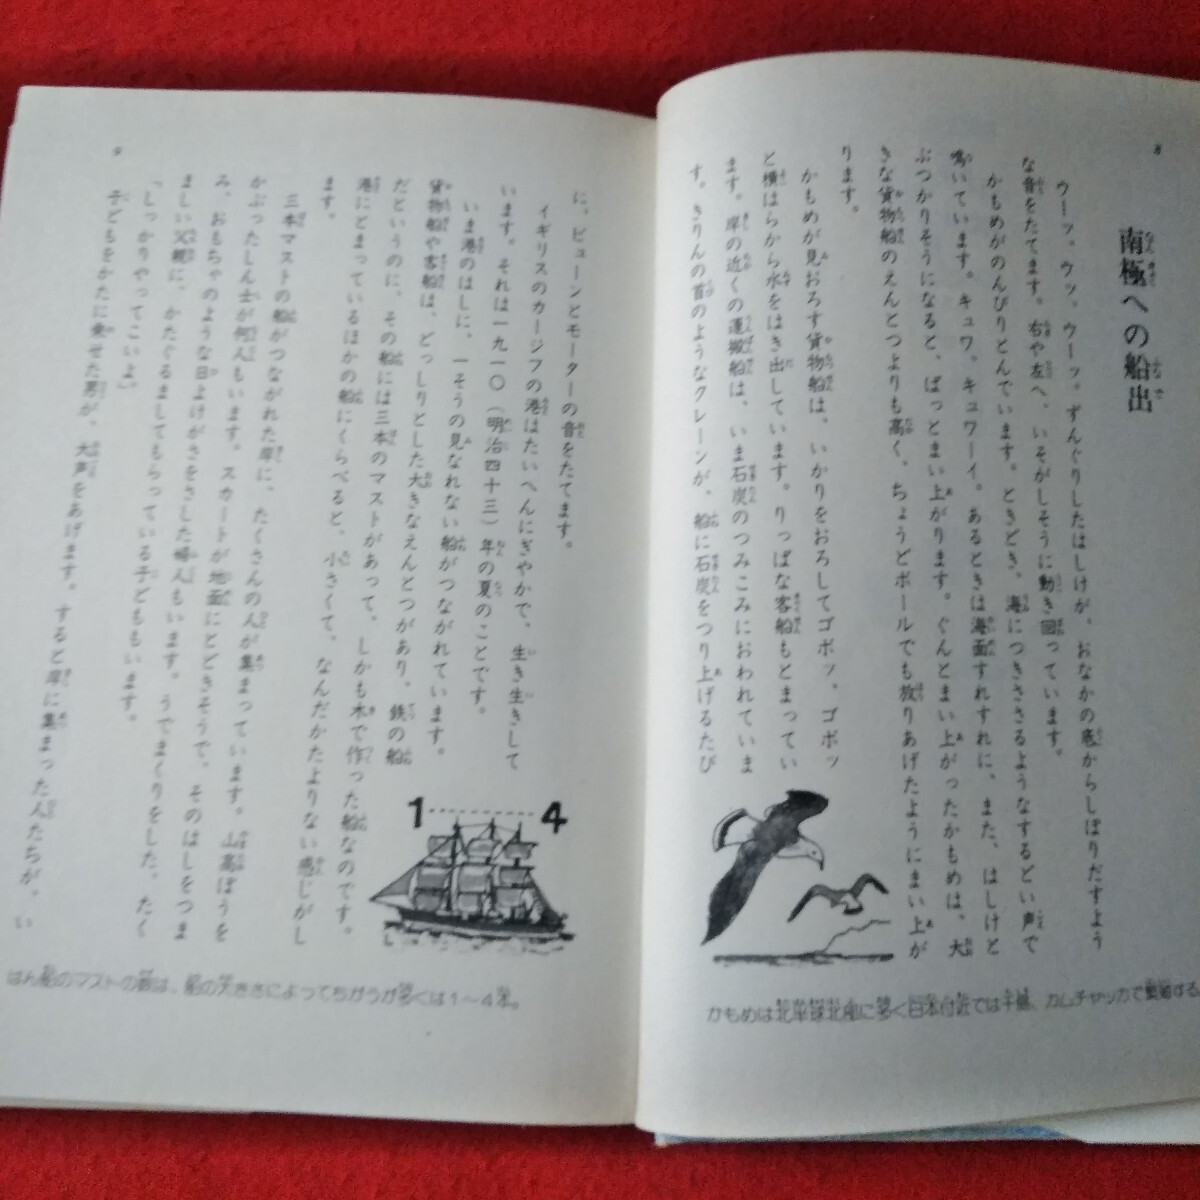 8
南極への船出
ウーッ、ウッ、ウーッ。ずんぐりしたはしけが、おなかの底からしぼりだすよう
な音をたてます。右や左へ、いそがしそうに動き回っています。
かもめがのんびりとんでいます。ときどき、海につきささるようなするどい声で
鳴いています。キュワ、キュワーイ。あるときは海面すれすれに、また、はしけと
ぶつかりそうになると、ぱっとまい上がります。ぐんとまい上がったかもめは、大
きな貨物船のえんとつよりも高く、ちょうどボールでも放りあげたようにまい上が
ります。
かもめが見おろす貨物船は、いかりをおろしてゴボッ、ゴボッ
と横はらから水をはき出しています。りっぱな客船もとまってい
ます。岸の近くの運搬船は、いま石炭のつみこみにおわれていま
す。きりんの首のようなクレーンが、船に石炭をつり上げるたび
かもめは北半球北部に多く日本付近では千島、カムチャッカで繁殖する。
に、ビューンとモーターの音をたてます。
イギリスのカージフの港はたいへんにぎやかで、生き生きして
います。それは一九一〇（明治四十三）年の夏のことです。
いま港のはしに、一そうの見なれない船がつながれています。
貨物船や客船は、どっしりとした大きなえんとつがあり、鉄の船
だというのに、その船には三本のマストがあって、しかも木で作った船なのです。
港にとまっているほかの船にくらべると、小さくて、なんだかたよりない感じがし
ます。
三本マストの船がつながれた岸に、たくさんの人が集まっています。山高ぼうを
かぶったしん士が何人もいます。スカートが地面にとどきそうで、そのはしをつま
み、おもちゃのような日よけがさをさした婦人もいます。うでまくりをした、たく
ましい父親に、かたぐるましてもらっている子どももいます。
「しっかりやってこいよ」
子どもをかたに乗せた男が、大声をあげます。すると岸に集まった人たちが、い
1
4
はん船のマストの数は、船の大きさによってちがうが多くは1〜4本。
9